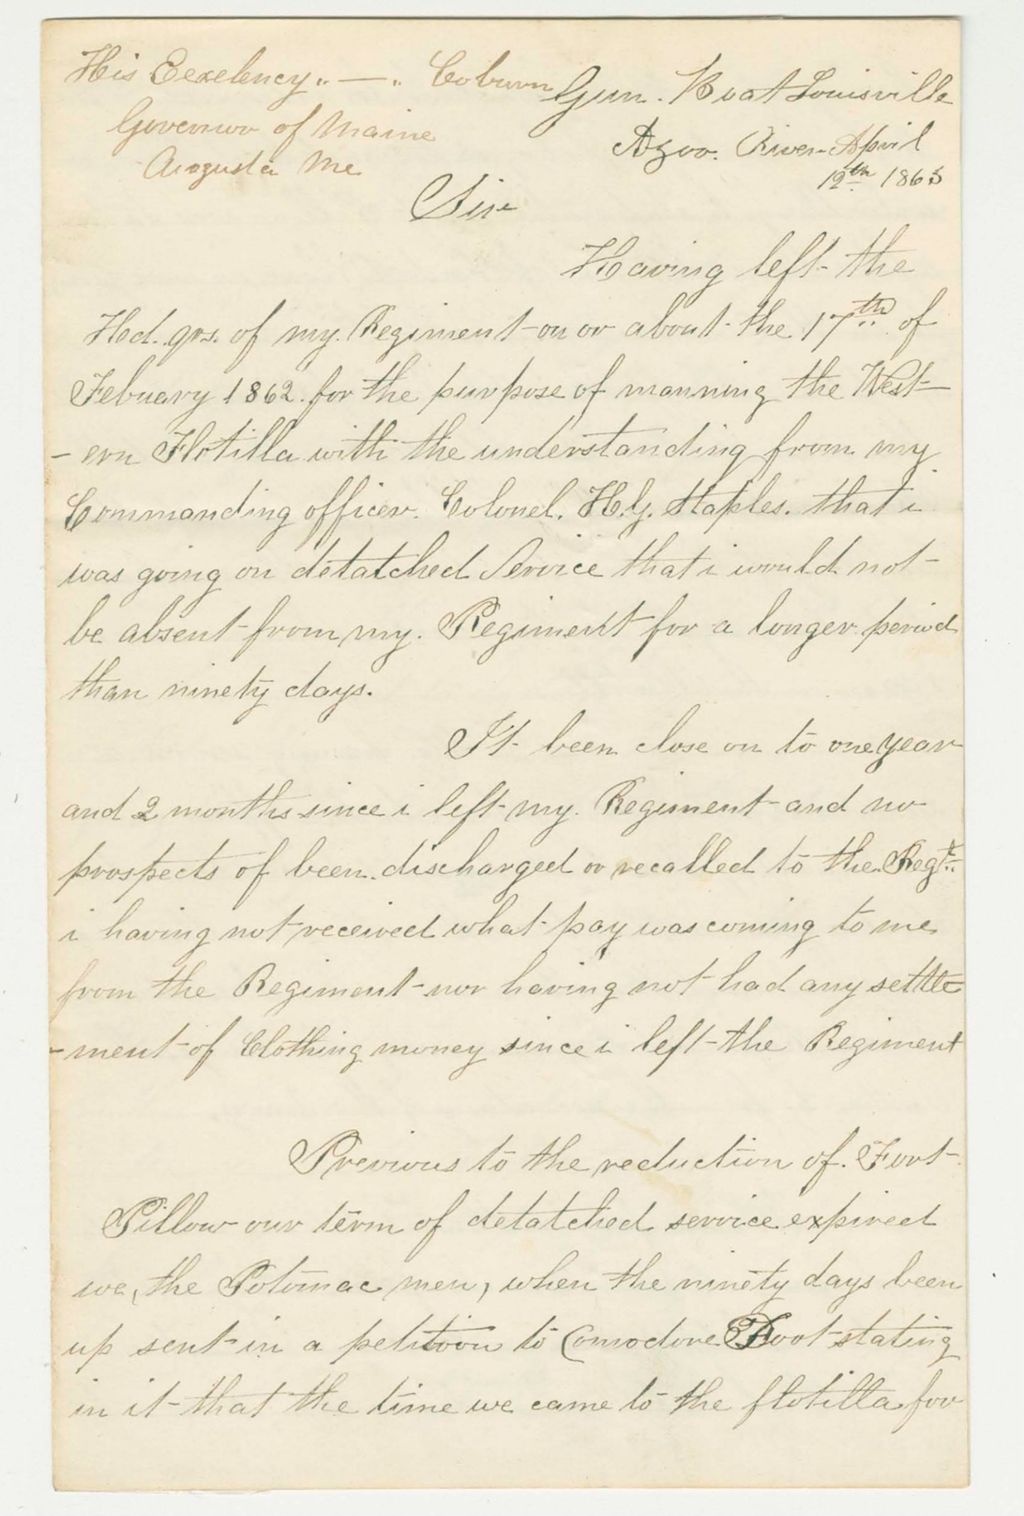 His Excelency ,, — ,, Coburn
Governor of Maine
Augusta Me
Gun. Boat Louisville
Azoo. River April
12th 1863
Sir
Having left the
Hd. qrs. of my. Regiment on or about the 17th of
Febuary 1862. for the purpose of manning the West-
- ern Flotilla with the understanding from my
Commanding officer. Colonel. H.G. Staples. that i
was going on detatched Service that i would not
be absent from my. Regiment for a longer period
than ninety days.
It been close on to one year
and 2 months since i left my. Regiment and no
prospects of been discharged or recalled to the Regt
i having not received what pay was coming to me
from the Regiment nor having not had any settle
- ment of Clothing money since i left the Regiment
Previous to the reduction of. Fort
Pillow our term of detatched service expired
we, the Potomac men, when the ninety days been
up sent in a petition to Comodore Foot stating
in it that the time we came to the flotilla for